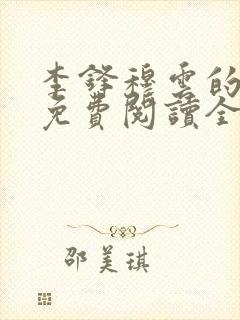 李鋒穆雲的
免費閱讀全
邵美琪